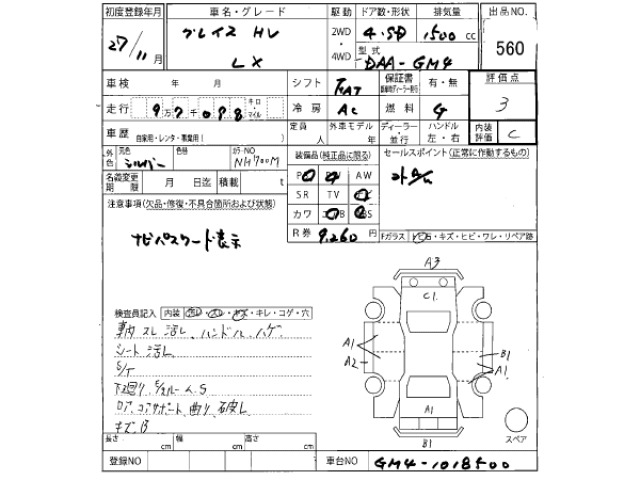 初度登録年月 車名・グレード 駆動 ドア数・形状 排気量 出品NO.
27/11月 グレイス HV 2WD・4WD 4.5D 1500cc 560
LX 型式 DAA-GM4
車検 年 月 シフト FAT 保証書 有・無 評価点
走行 97098 キロ・マイル 冷房 AC 燃料 G 3
車歴 自家用・レンタ・事業用( ) 定員 人 外車モデル 年 ディーラー・並行 ハンドル 左・右 内装評価 C
外色 元色 シルバー 色替 カラーNO NH700M 装備品(純正品に限る) セールスポイント(正常に作動するもの)
名義変更期限 月 日迄 積載 t P AW
注意事項(欠品・修復・不具合箇所および状態) SR TV
カワ
ナビパスワード表示 R券 9,260円 Fガラス ・キズ・ヒビ・ワレ・リペア跡
A3
C1
検査員記入 内装 ・キレ・コゲ・穴
車内 スレ 汚レ、ハンドル、ハゲ A1
シート 汚レ A2 B1
S/T A1
下廻り
コアサポート 曲り A1
キズ、B
長さ cm 幅 cm 高さ cm B1 スペア
登録NO 車台NO GM4-1018500